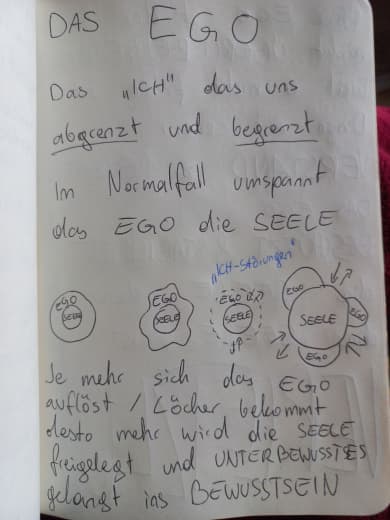 DAS EGO
Das „ICH" das uns
abgrenzt und begrenzt
Im Normalfall umspannt
das EGO die SEELE
„ICH-Störungen"
EGO
SEELE
EGO
SEELE
EGO
SEELE
EGO
SEELE
EGO
EGO
Je mehr sich das EGO
auflöst / Löcher bekommt
desto mehr wird die SEELE
freigelegt und UNTERBEWUSSTES
gelangt ins BEWUSSTSEIN